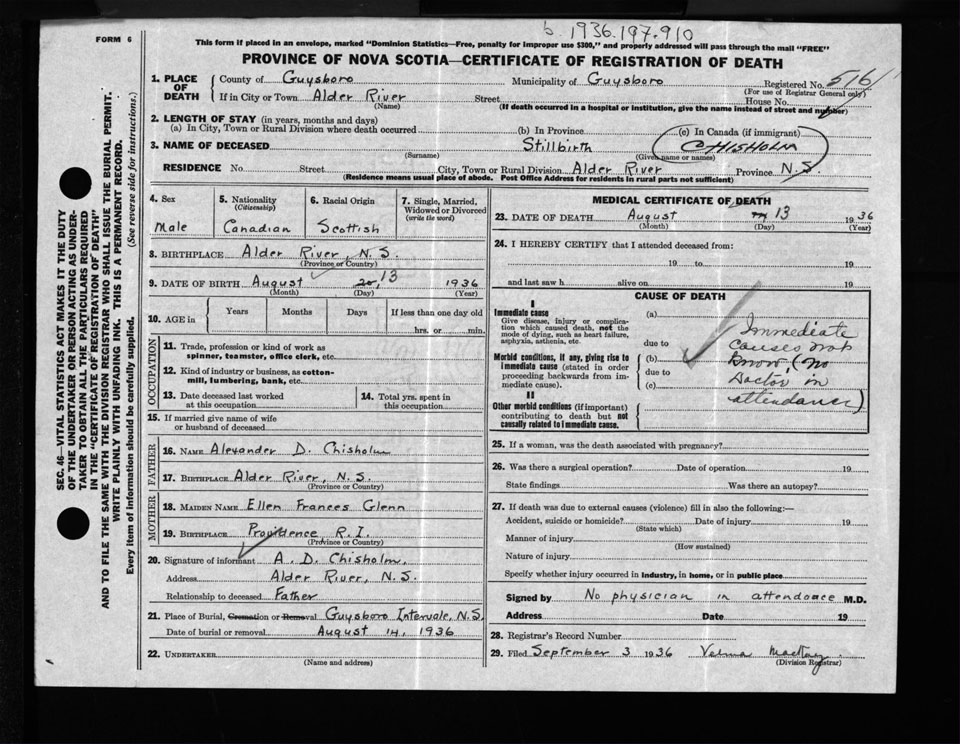 b. 1936.197.910
FORM 6
This form if placed in an envelope, marked "Dominion Statistics—Free, penalty for improper use $300," and properly addressed will pass through the mail "FREE"
PROVINCE OF NOVA SCOTIA—CERTIFICATE OF REGISTRATION OF DEATH
1. PLACE OF DEATH County of Guysboro Municipality of Guysboro Registered No. 516
(For use of Registrar General only)
If in City or Town Alder River Street House No.
(Name) (If death occurred in a hospital or institution, give the name instead of street and number)
2. LENGTH OF STAY (in years, months and days)
(a) In City, Town or Rural Division where death occurred (b) In Province (c) In Canada (if immigrant)
3. NAME OF DECEASED Stillbirth CHISHOLM
(Surname) (Given name or names)
RESIDENCE No Street City, Town or Rural Division Alder River Province N.S.
(Residence means usual place of abode. Post Office Address for residents in rural parts not sufficient)
4. Sex 5. Nationality (Citizenship) 6. Racial Origin 7. Single, Married, Widowed or Divorced (write the word)
Male Canadian Scottish
8. BIRTHPLACE Alder River, N.S.
(Province or Country)
9. DATE OF BIRTH August 13 1936
(Month) (Day) (Year)
10. AGE in Years Months Days If less than one day old
hrs. or min.
OCCUPATION
11. Trade, profession or kind of work as spinner, teamster, office clerk, etc.
12. Kind of industry or business, as cotton-mill, lumbering, bank, etc.
13. Date deceased last worked at this occupation
14. Total yrs. spent in this occupation
15. If married give name of wife or husband of deceased
FATHER
16. NAME Alexander D. Chisholm
17. BIRTHPLACE Alder River, N.S.
(Province or Country)
MOTHER
18. MAIDEN NAME Ellen Frances Glenn
19. BIRTHPLACE Providence R.I.
(Province or Country)
20. Signature of informant A. D. Chisholm,
Address Alder River, N.S.
Relationship to deceased Father
21. Place of Burial, Cremation or Removal Guysboro Intervale, N.S.
Date of burial or removal August 14, 1936
22. UNDERTAKER
(Name and address)
MEDICAL CERTIFICATE OF DEATH
23. DATE OF DEATH August 13 1936
(Month) (Day) (Year)
24. I HEREBY CERTIFY that I attended deceased from:
19 to 19
and last saw h alive on 19
CAUSE OF DEATH
I
Immediate cause
Give disease, injury or complication which caused death, not the mode of dying, such as heart failure, asphyxia, asthenia, etc.
Morbid conditions, if any, giving rise to immediate cause (stated in order proceeding backwards from immediate cause).
II
Other morbid conditions (if important) contributing to death but not causally related to immediate cause.
(a)
due to
(b)
due to
(c)
Immediate
causes not
know, (No
Doctor in
attendance)
25. If a woman, was the death associated with pregnancy?
26. Was there a surgical operation? Date of operation 19
State findings Was there an autopsy?
27. If death was due to external causes (violence) fill in also the following:—
Accident, suicide or homicide? Date of injury 19
(State which)
Manner of injury
(How sustained)
Nature of injury
Specify whether injury occurred in industry, in home, or in public place
Signed by No physician in attendance M.D.
Address Date 19
28. Registrar's Record Number
29. Filed September 3 1936 Velma
(Division Registrar)
SEC. 46—VITAL STATISTICS ACT MAKES IT THE DUTY
OF THE UNDERTAKER OR PERSON ACTING AS UNDER-
TAKER "TO OBTAIN ALL THE PARTICULARS REQUIRED
IN THE "CERTIFICATE OF REGISTRATION OF DEATH"
AND TO FILE THE SAME WITH THE DIVISION REGISTRAR WHO SHALL ISSUE THE BURIAL PERMIT.
WRITE PLAINLY WITH UNFADING INK. THIS IS A PERMANENT RECORD.
Every item of information should be carefully supplied. (See reverse side for instructions.)